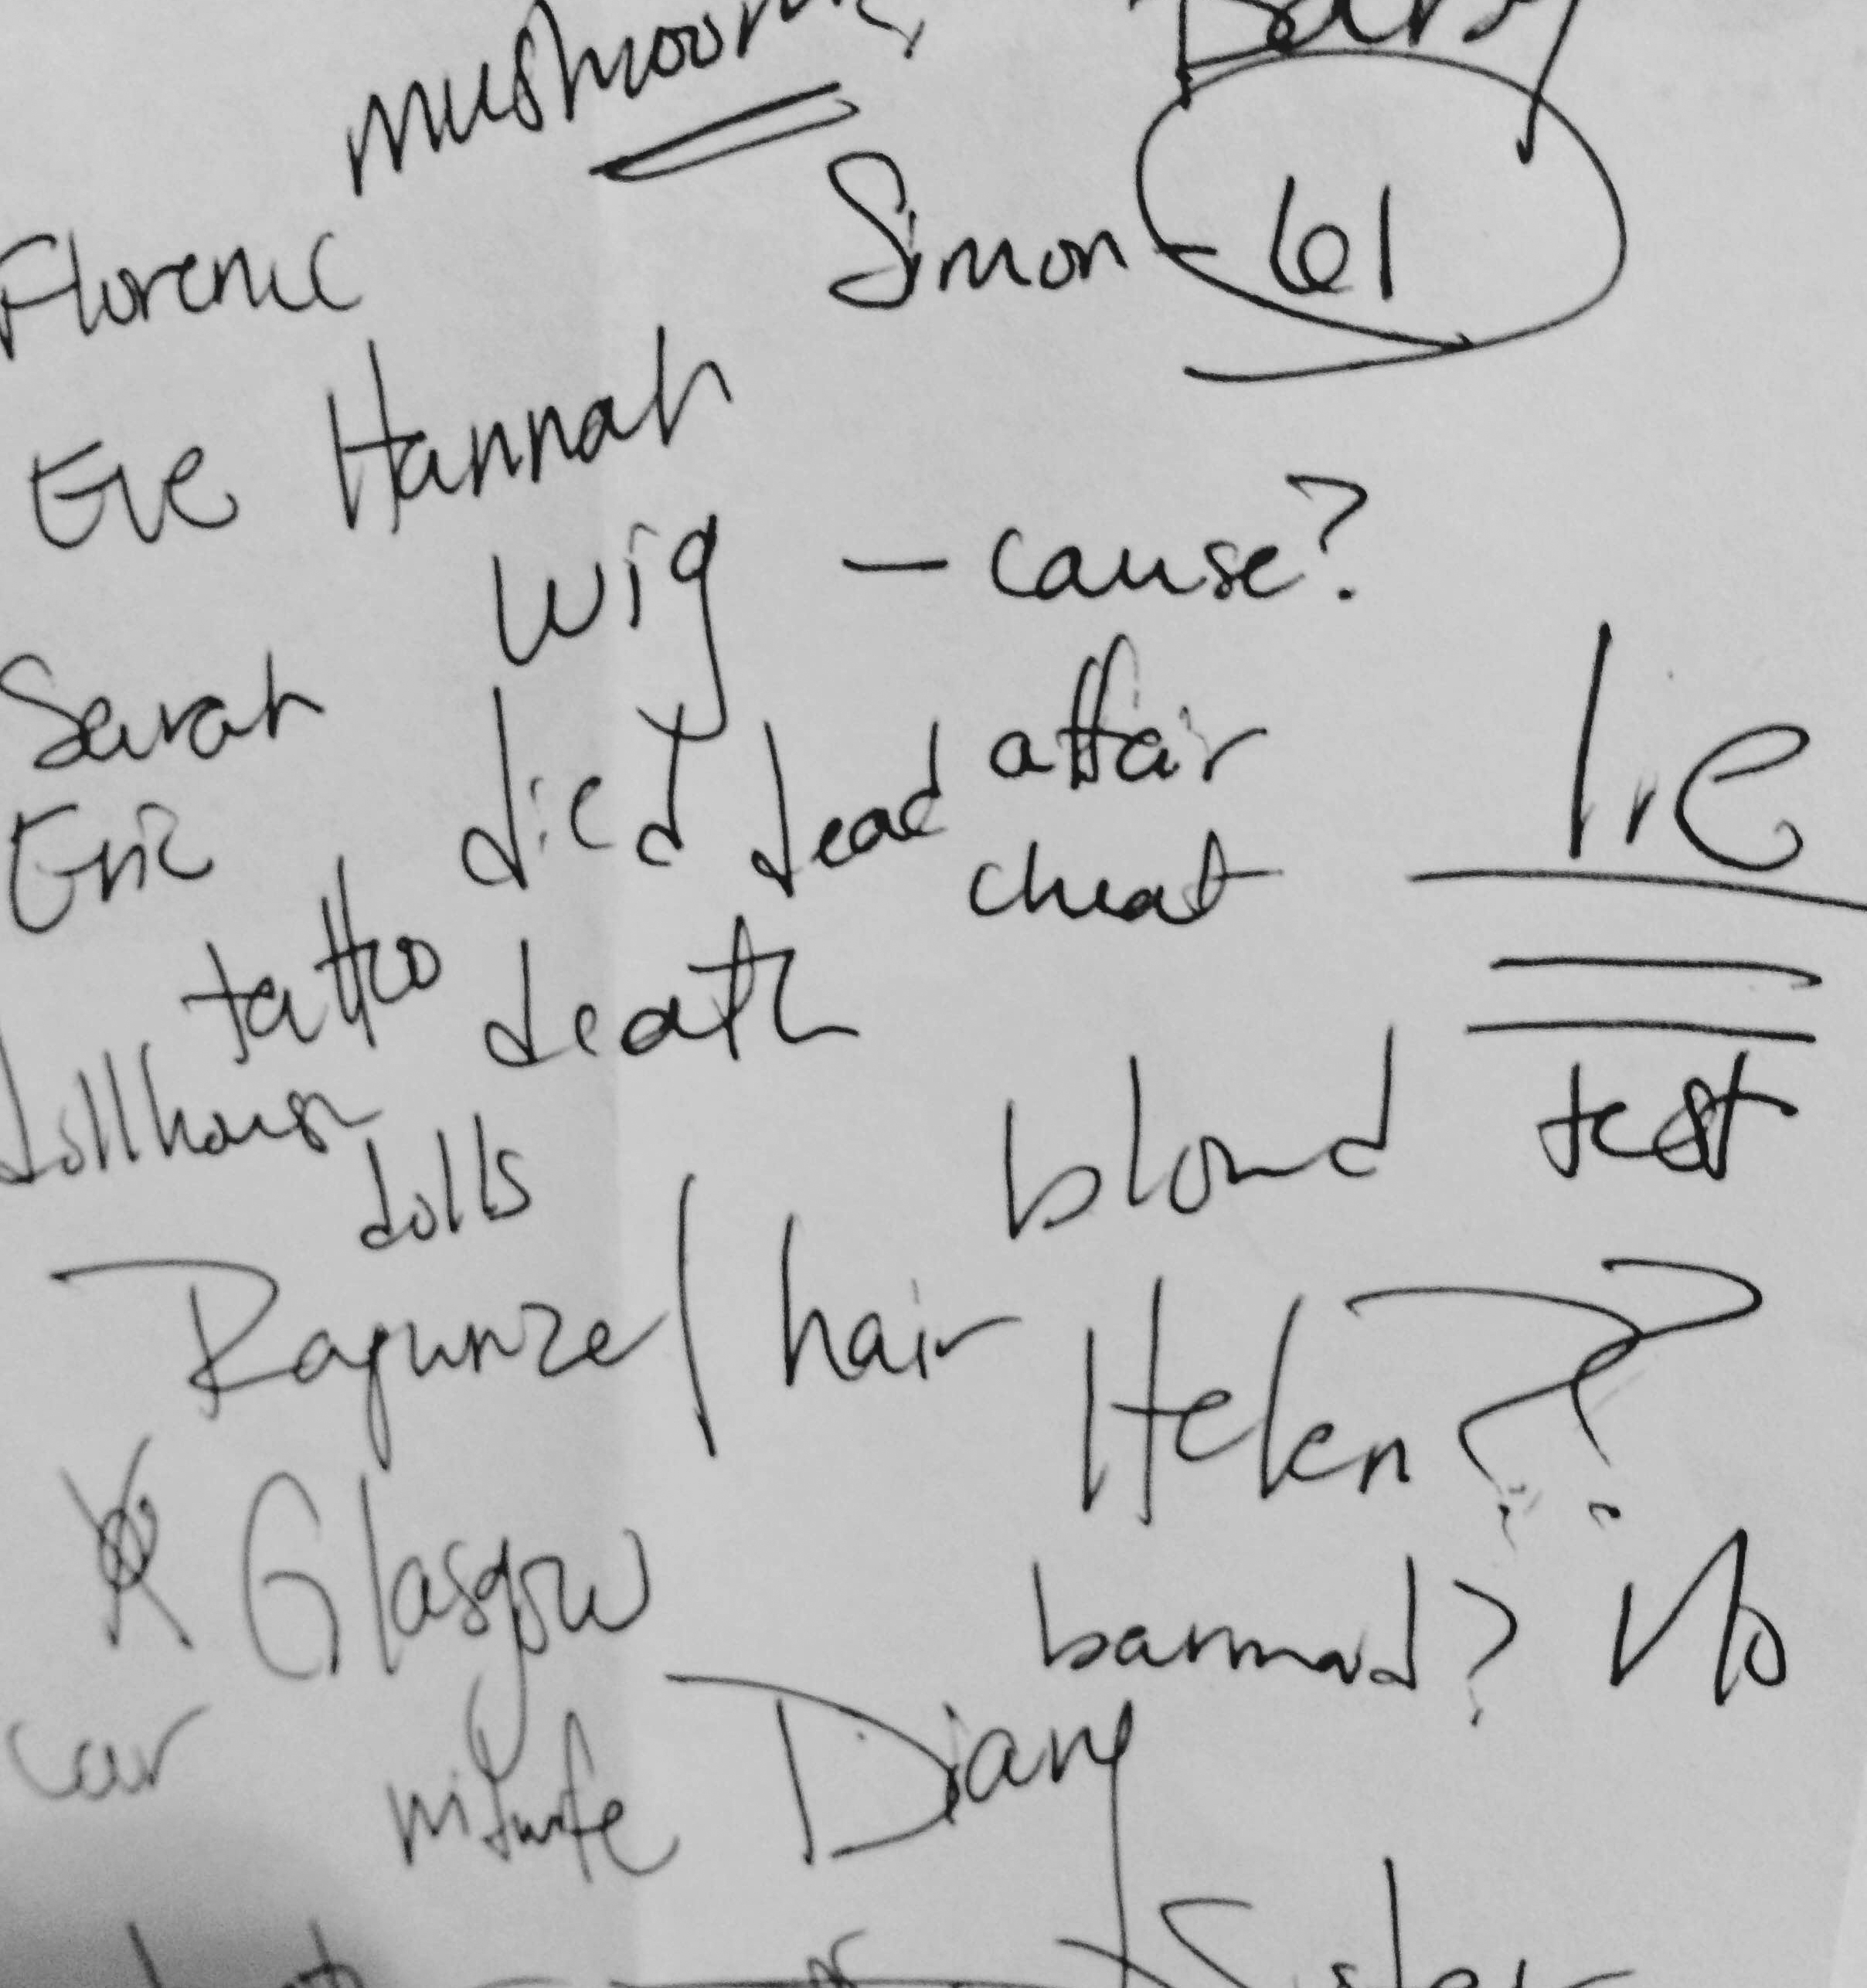 mushrooms Baby
Simon - 61
Florence
Eve Hannah
wig - cause?
Sarah died dead affair lie
Eric cheat
tattoo death
dollhouse blond test
dolls
Rapunzel / hair Helen??
Glasgow barmaid? No
car midwife Diary
Sister